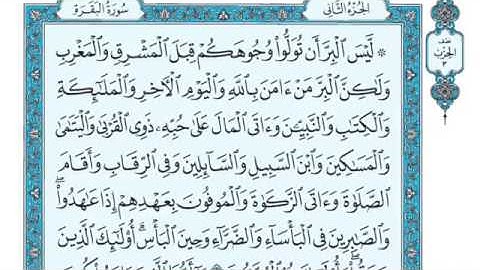 سُورَةُ الْبَقَرَةِ
الجُزْءُ الثَّانِي
نصف
الحزب
۞ لَّيْسَ ٱلْبِرَّ أَن تُوَلُّوا۟ وُجُوهَكُمْ قِبَلَ ٱلْمَشْرِقِ وَٱلْمَغْرِبِ
وَلَٰكِنَّ ٱلْبِرَّ مَنْ ءَامَنَ بِٱللَّهِ وَٱلْيَوْمِ ٱلْءَاخِرِ وَٱلْمَلَٰٓئِكَةِ
وَٱلْكِتَٰبِ وَٱلنَّبِيِّۦنَ وَءَاتَى ٱلْمَالَ عَلَىٰ حُبِّهِۦ ذَوِى ٱلْقُرْبَىٰ وَٱلْيَتَٰمَىٰ
وَٱلْمَسَٰكِينَ وَٱبْنَ ٱلسَّبِيلِ وَٱلسَّآئِلِينَ وَفِى ٱلرِّقَابِ وَأَقَامَ
ٱلصَّلَوٰةَ وَءَاتَى ٱلزَّكَوٰةَ وَٱلْمُوفُونَ بِعَهْدِهِمْ إِذَا عَٰهَدُوا۟ۖ
وَٱلصَّٰبِرِينَ فِى ٱلْبَأْسَآءِ وَٱلضَّرَّآءِ وَحِينَ ٱلْبَأْسِۗ أُو۟لَٰٓئِكَ ٱلَّذِينَ